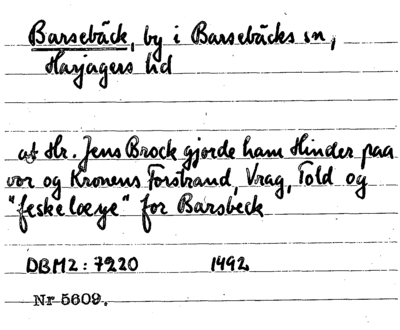 Barsebäck, by i Barsebäcks sn,
Harjagers hd
at Hr. Jens Brock gjorde ham Hinder paa
vor og Kronens Forstrand, Vrag, Told og
"feskelæye" for Barsbeck
DBM2: 7220 1492
Nr 5609.